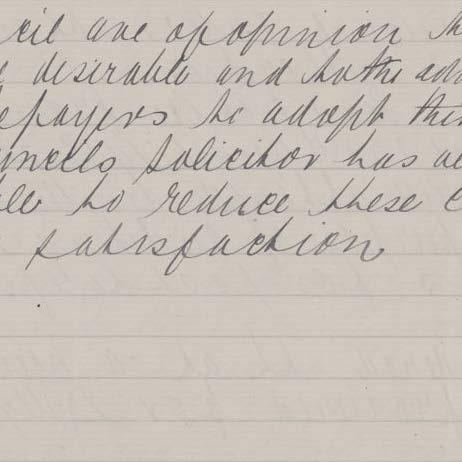 cil are of opinion th
e desirable and to the adv
epayers to adopt the
uncils Solicitor has
ble to reduce these C
satisfaction